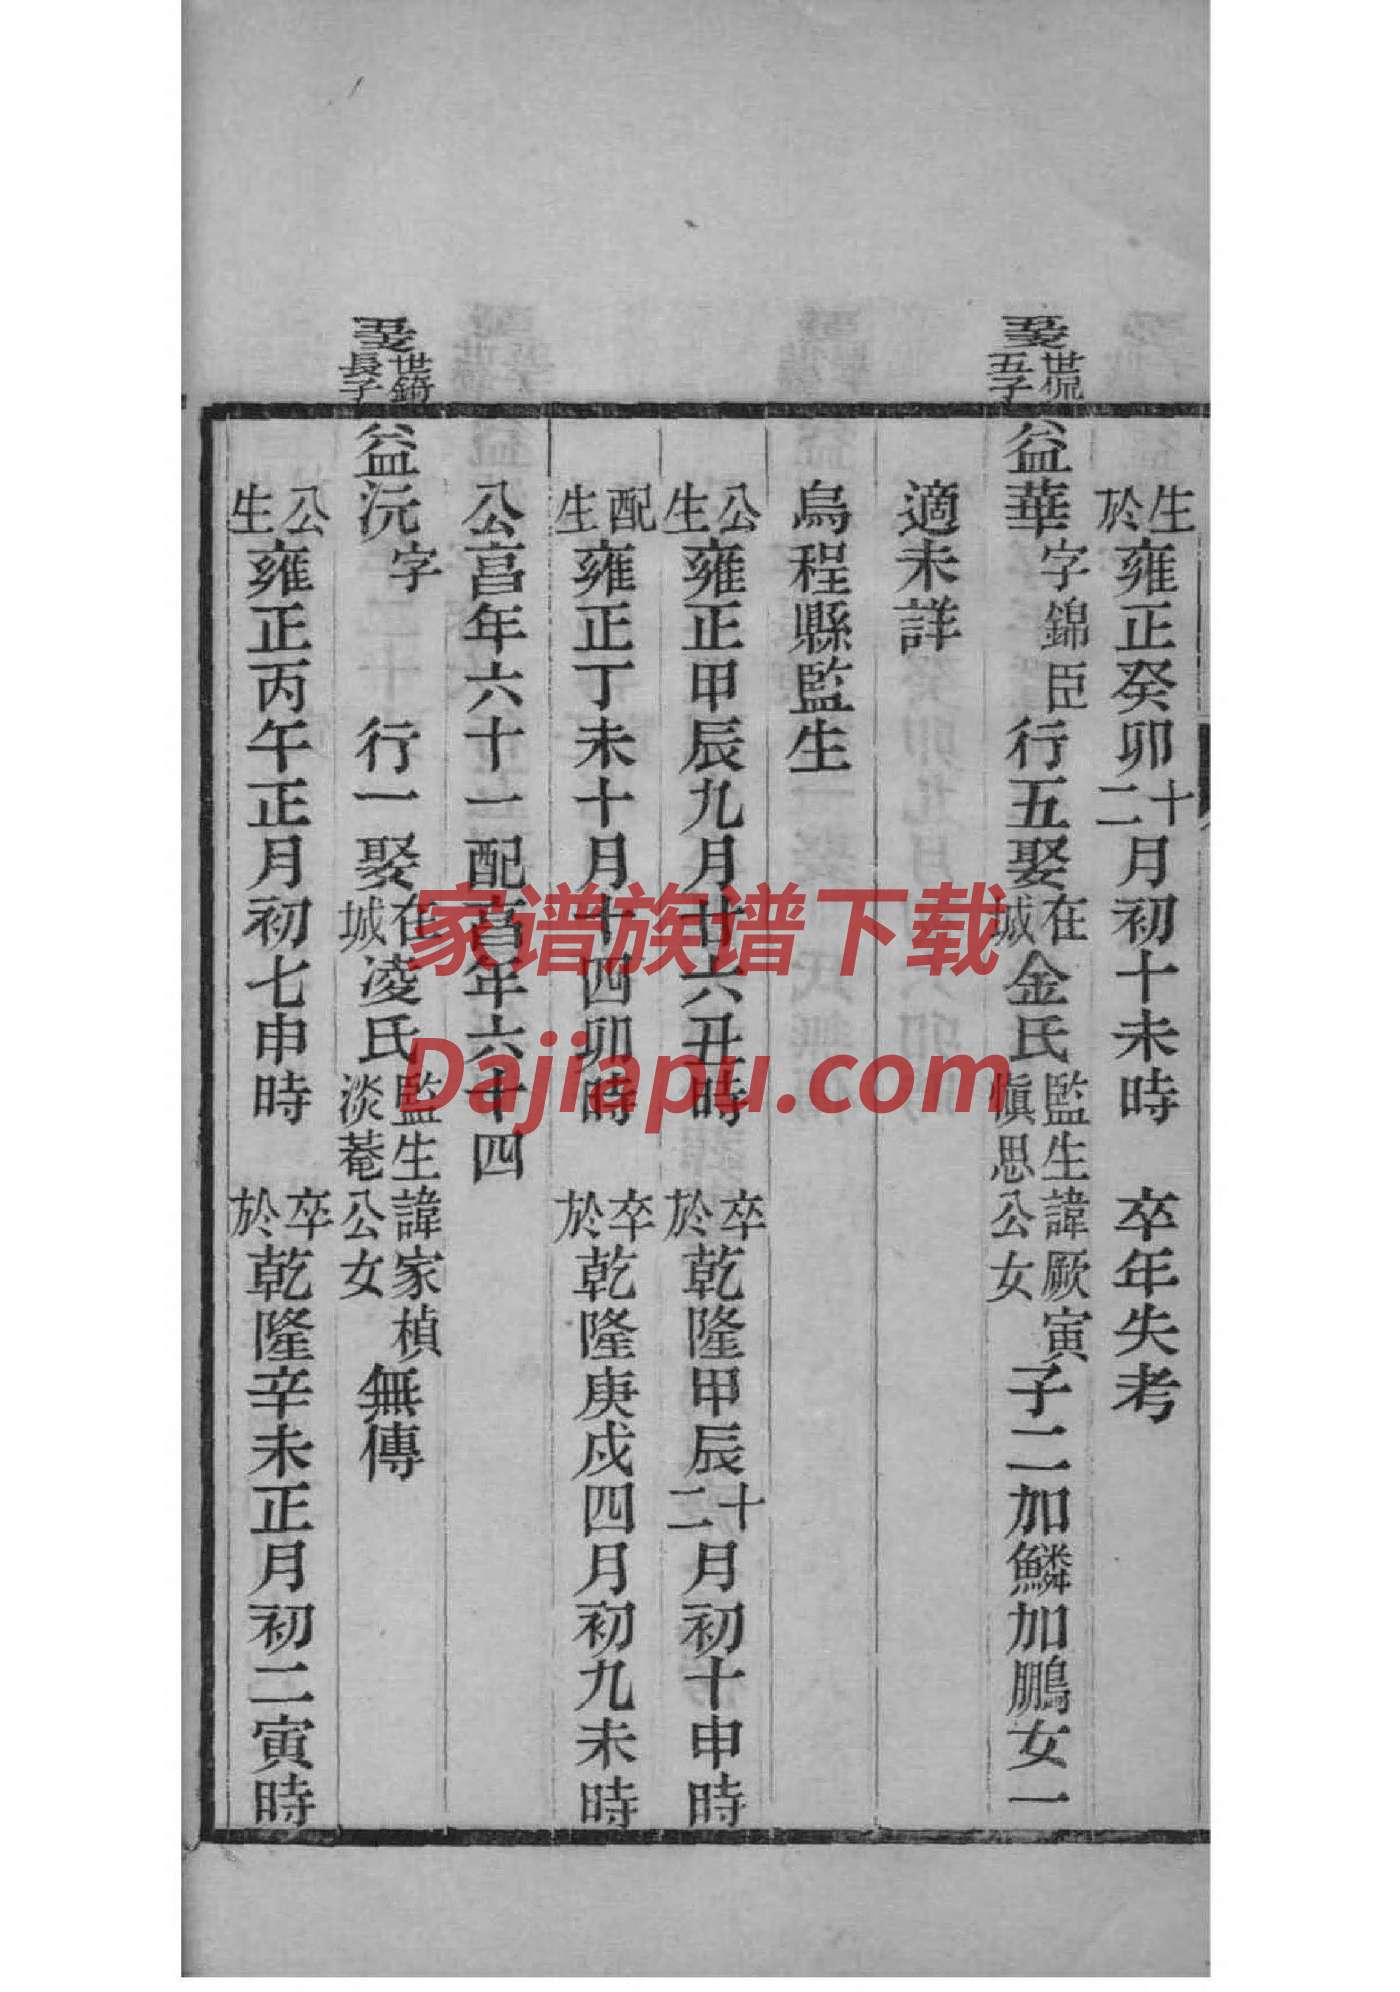 生於雍正癸卯十二月初十未時　卒年失考
世侃五子
益華字錦臣行五娶在城金氏監生諱厥寅慎思公女子二加鱗加鵬女一
適未詳
烏程縣監生
公生雍正甲辰九月廿六丑時　卒於乾隆甲辰十二月初十申時
配生雍正丁未十月十四卯時　卒於乾隆庚戌四月初九未時
公享年六十一配享年六十四
世錡長子
益沅字　行一娶在城凌氏監生諱家楨淡菴公女無傳
公生雍正丙午正月初七申時　卒於乾隆辛未正月初二寅時
家谱族谱下载
Dajiapu.com